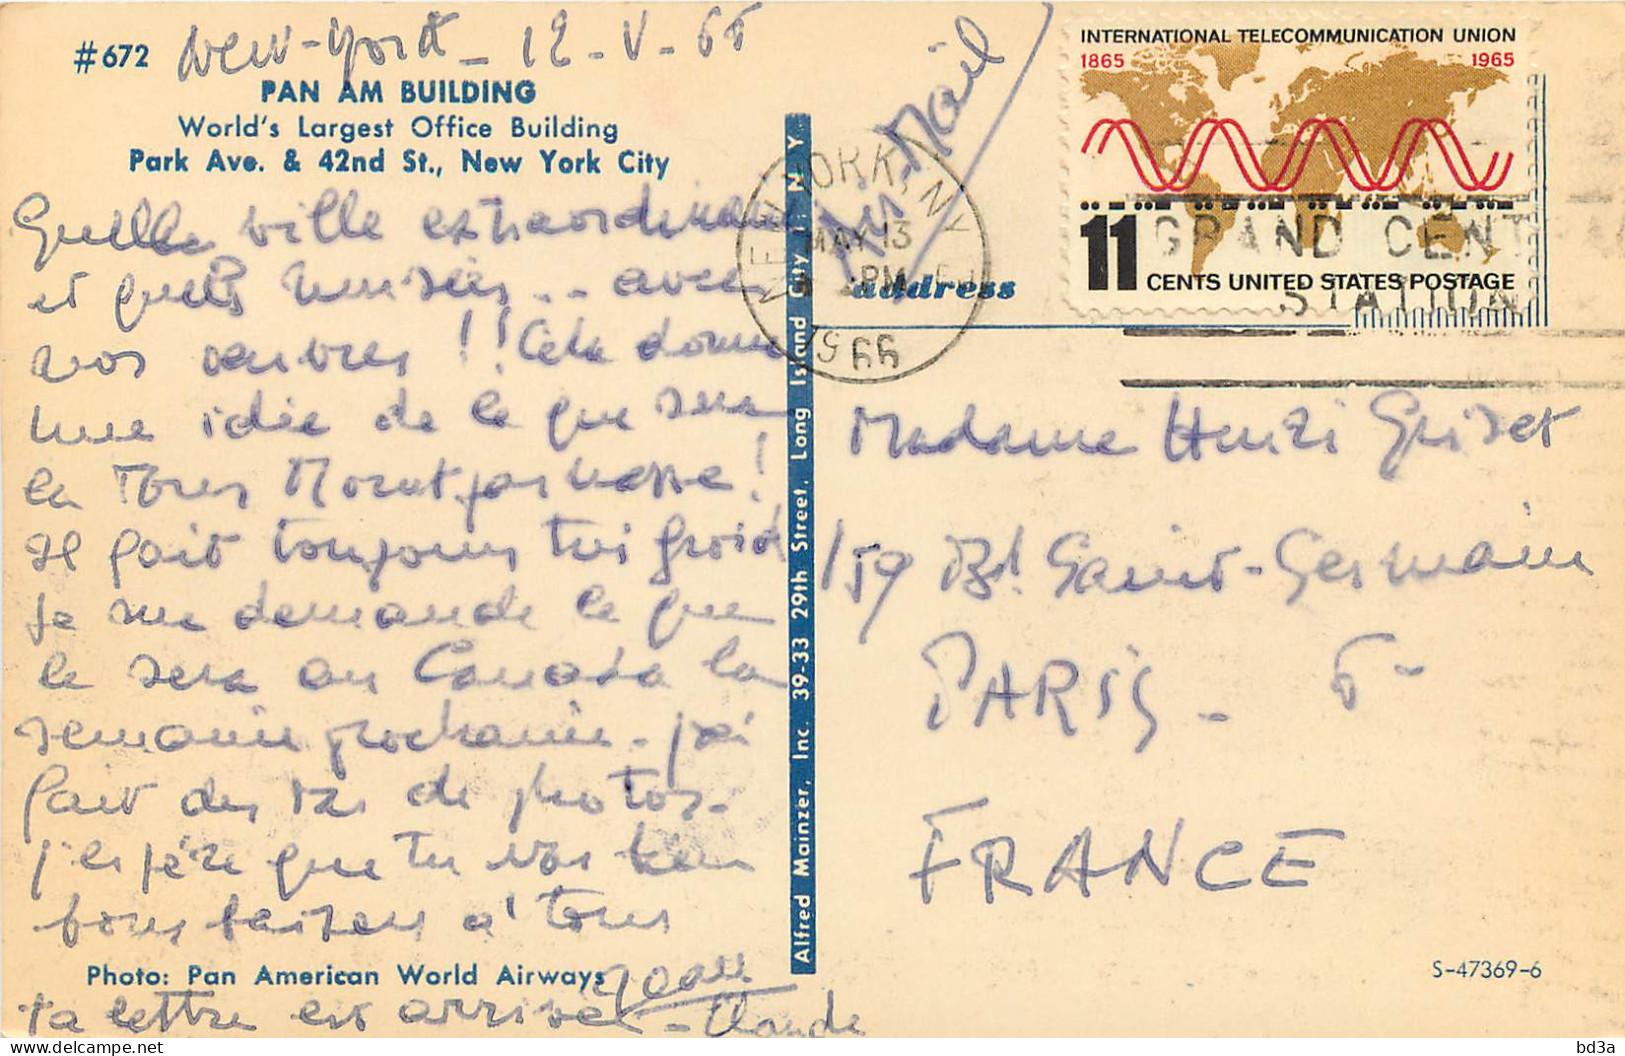 #672 New-York - 12-V-66
PAN AM BUILDING
World's Largest Office Building
Park Ave. & 42nd St., New York City
Quelle ville extraordinaire
et quels musées.. avec
vos œuvres !! Cela donne
une idée de ce que sera
la Tour Montparnasse !
Il fait toujours très froid
Je me demande ce que
ce sera au Canada la
semaine prochaine - j'ai
fait des tas de photos -
j'espère que tu vas bien
bons baisers à tous
Photo: Pan American World Airways
ta lettre est arrivée - Claude
Alfred Mainzer, Inc. 39-33 29th Street, Long Island City 1, N Y
Air-Mail
address
INTERNATIONAL TELECOMMUNICATION UNION
1865 1965
11 CENTS UNITED STATES POSTAGE
NEW YORK, NY
MAY 13
PM
1966
GRAND CENT
STATION
Madame Henri Grizet
159 Bd Saint-Germain
PARIS - 6
FRANCE
S-47369-6
bd3a